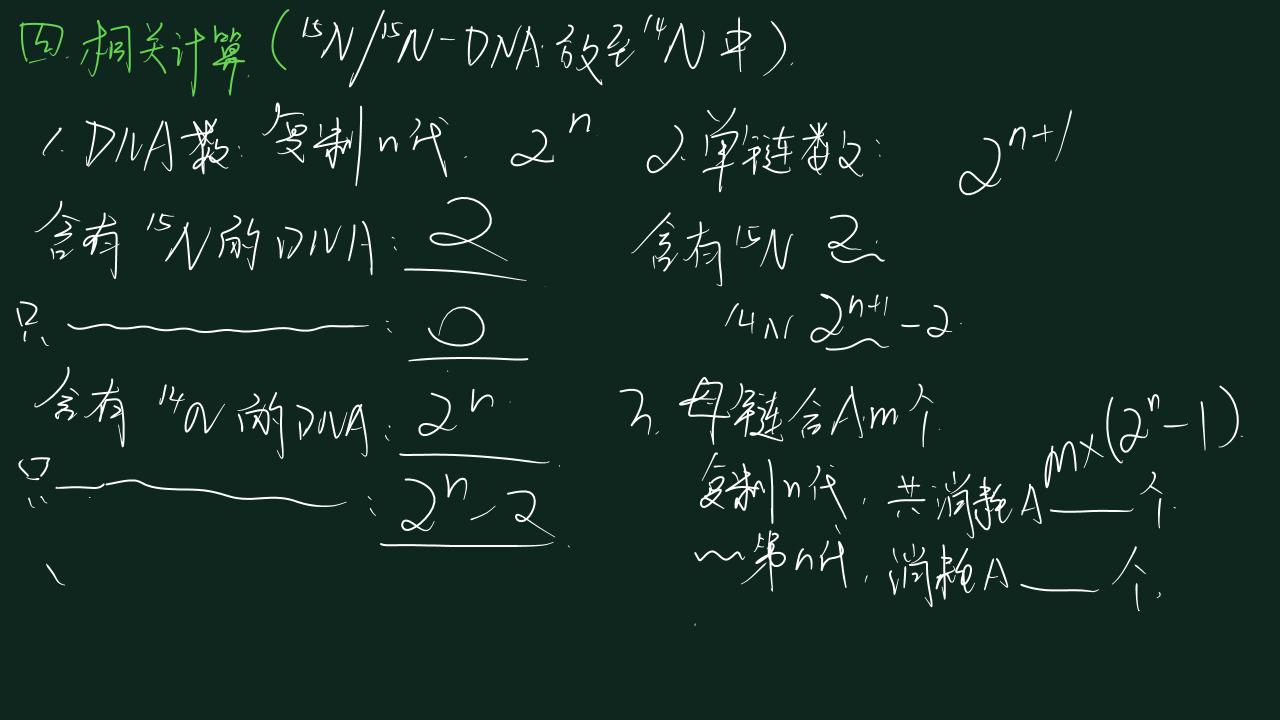 四.相关计算(¹⁵N/¹⁵N-DNA放至¹⁴N中).
1.DNA数:复制n代. 2ⁿ
含有¹⁵N的DNA: 2
只 ——: 0
含有¹⁴N的DNA: 2ⁿ
只 ——: 2ⁿ-2
2.单链数: 2ⁿ⁺¹
含有¹⁵N 2.
14N 2ⁿ⁺¹-2.
3.母链含A m个
复制n代,共消耗A m×(2ⁿ-1)个.
~第n代,消耗A——个.